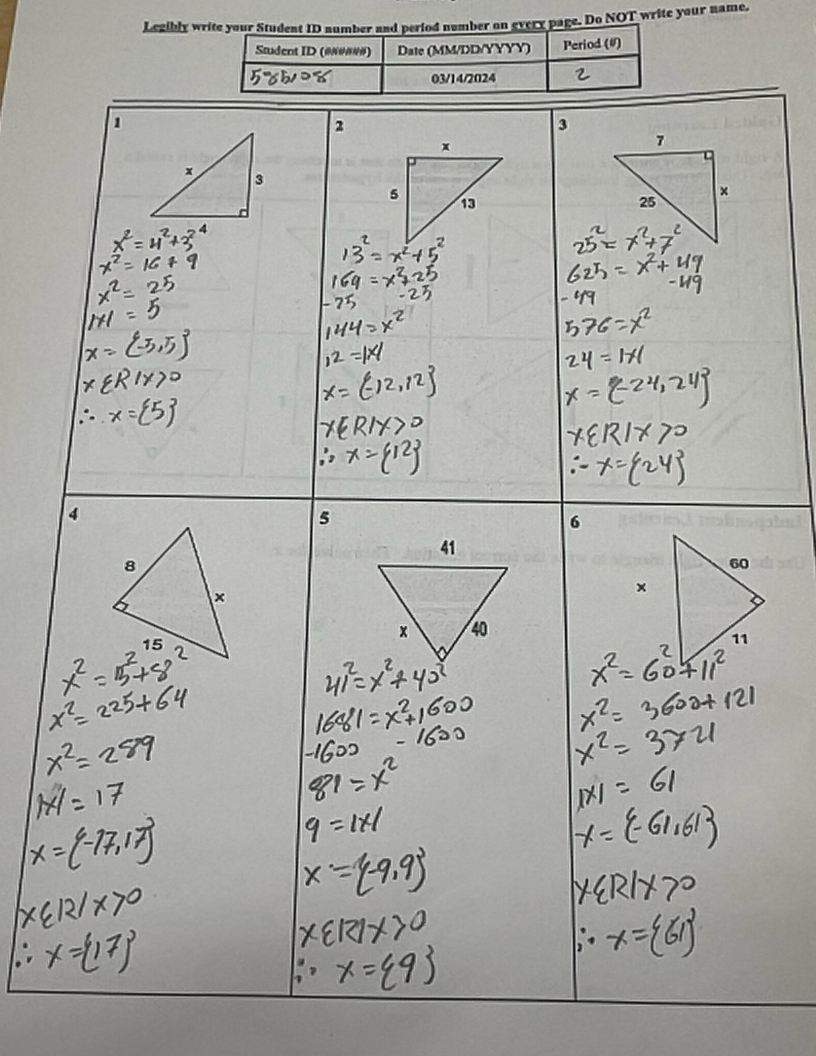 Legibly write your Student ID number and period number on every page. Do NOT write your name.
Student ID (######) Date (MM/DD/YYYY) Period (#)
03/14/2024 2
1
x
3
4
x² = 4² + 3²
x² = 16 + 9
x² = 25
|x| = 5
x = {-5,5}
x ∈ R | x > 0
∴ x = {5}
2
x
5
13
13² = x² + 5²
169 = x² + 25
-25 -25
144 = x²
12 = |x|
x = {-12, 12}
x ∈ R | x > 0
∴ x = {12}
3
7
x
25
25² = x² + 7²
625 = x² + 49
-49 -49
576 = x²
24 = |x|
x = {-24, 24}
x ∈ R | x > 0
∴ x = {24}
4
8
x
15
x² = 15² + 8²
x² = 225 + 64
x² = 289
|x| = 17
x = {-17, 17}
x ∈ R | x > 0
∴ x = {17}
5
41
x
40
41² = x² + 40²
1681 = x² + 1600
-1600 -1600
81 = x²
9 = |x|
x = {-9, 9}
x ∈ R | x > 0
∴ x = {9}
6
60
x
11
x² = 60² + 11²
x² = 3600 + 121
x² = 3721
|x| = 61
x = {-61, 61}
x ∈ R | x > 0
∴ x = {61}